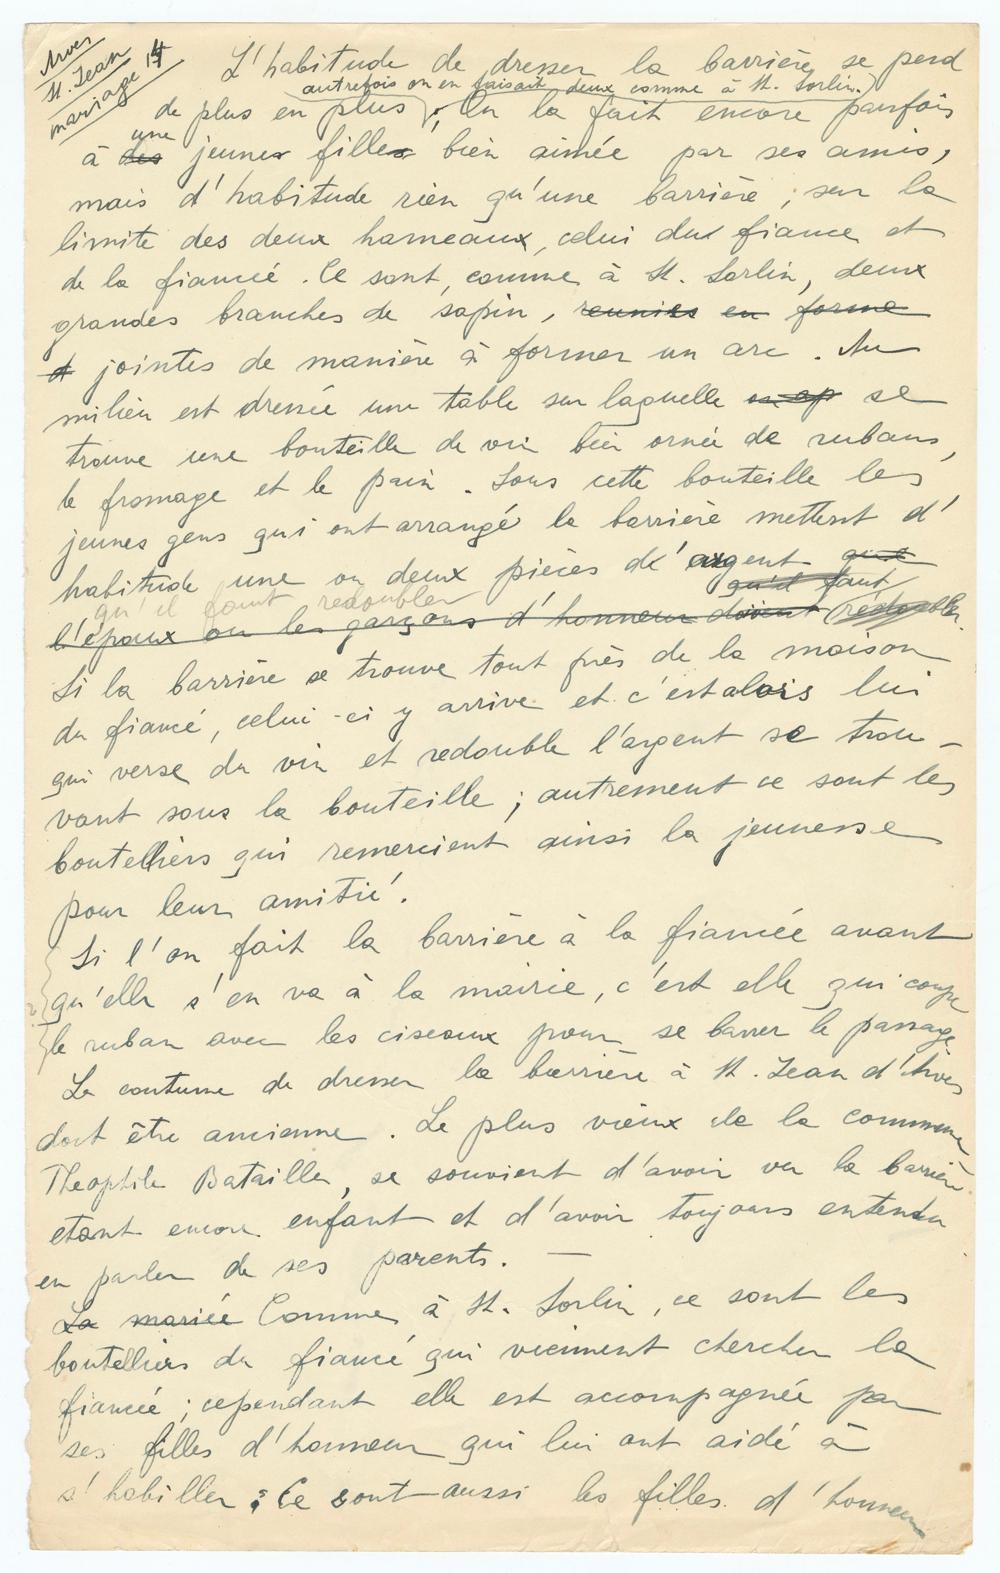 Arves
St. Jean
mariage 14
L'habitude de dresser la barrière se perd
autrefois on en faisait deux comme à St. Sorlin.
de plus en plus ; On la fait encore parfois
une
à des jeunes filles bien aimée par ses amis,
mais d'habitude rien qu'une barrière ; sur la
limite des deux hameaux, celui du fiancé et
de la fiancée. Ce sont, comme à St. Sorlin, deux
grandes branches de sapin, reunies en forme
d jointes de manière à former un arc. Au
milieu est dressée une table sur laquelle se
trouve une bouteille de vin bien ornée de rubans,
le fromage et le pain. Sous cette bouteille les
jeunes gens qui ont arrangé la barrière mettent d'
habitude une ou deux pièces d'argent que
qu'il faut
qu'il faut redoubler
l'époux ou les garçons d'honneur doivent redoubler.
Si la barrière se trouve tout près de la maison
du fiancé, celui-ci y arrive et c'est alors lui
qui verse du vin et redouble l'argent se trou-
vant sous la bouteille ; autrement ce sont les
boutelliers qui remercient ainsi la jeunesse
pour leur amitié.
Si l'on fait la barrière à la fiancée avant
qu'elle s'en va à la mairie, c'est elle qui coupe
le ruban avec les ciseaux pour se barrer le passage.
La coutume de dresser la barrière à St. Jean d'Arves
doit être ancienne. Le plus vieux de la commune
Theophile Batailler, se souvient d'avoir vu la barrière
etant encore enfant et d'avoir toujours entendu
en parler de ses parents. —
La mariée Comme à St. Sorlin, ce sont les
boutelliers du fiancé qui viennent chercher la
fiancée ; cependant elle est accompagnée par
ses filles d'honneur qui lui ont aidé à
s'habiller ; Ce sont aussi les filles d'honneur